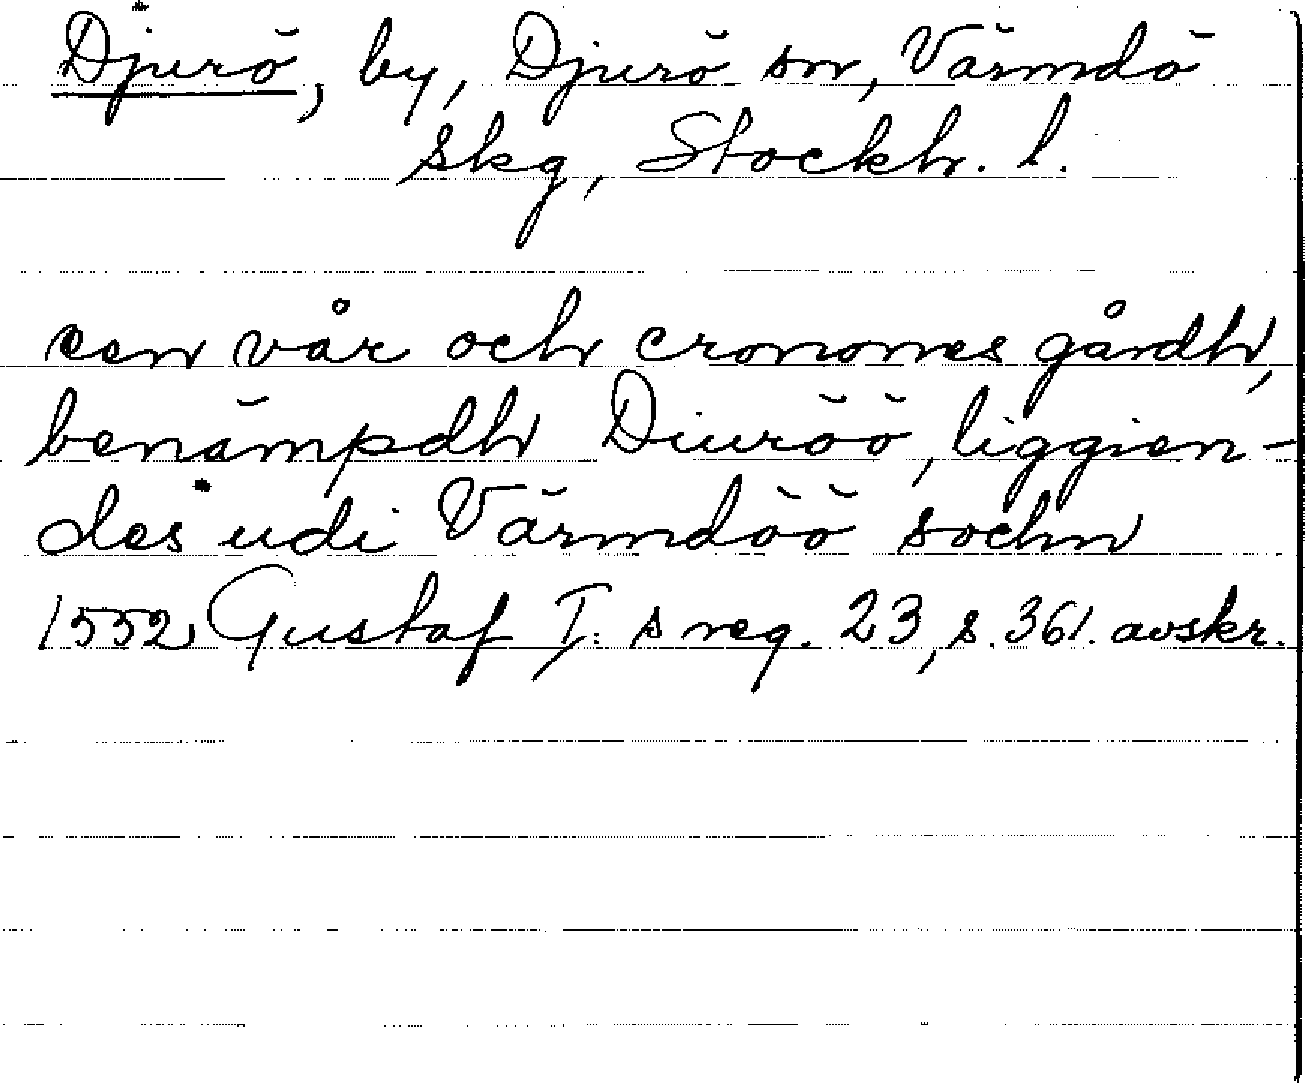 Djurö, by, Djurö sn, Värmdö
skg, Stockh. l.
een vår och cronones gårdh,
benämpdh Diuröö, liggien-
des udi Värmdöö sochn
1552 Gustaf I: s reg. 23, s. 361. avskr.